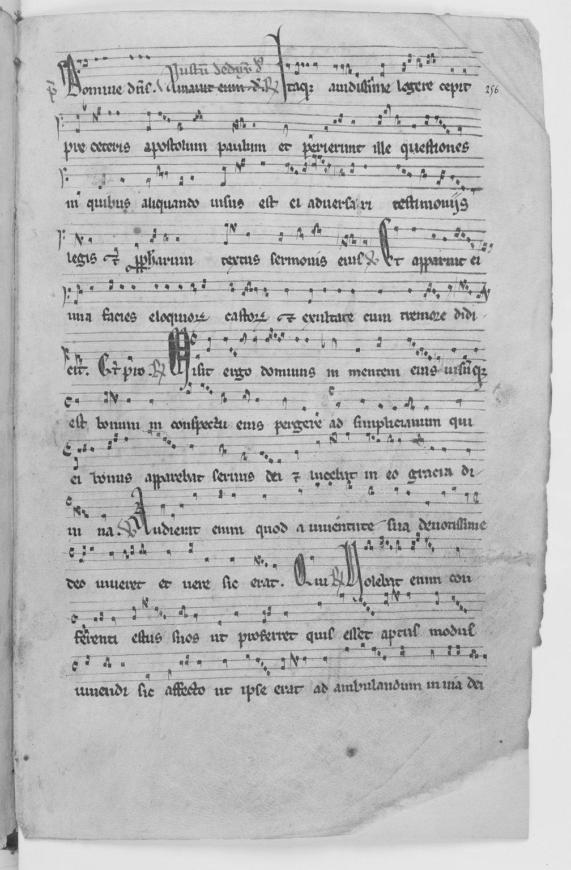 Iustum deduxit
Domine dns. Amauit eum d. Itaq; auidissime legere cepit 256
pre ceteris apostolum paulum et perierunt ille questiones
in quibus aliquando uisus est ei aduersari testimonijs
legis et ppharum textus sermonis eius Et apparuit ei
una facies eloquiorz castorz et exultare cum tremore didi
cit. Et pro Misit ergo dominus in mentem eius uisumq;
est bonum in conspectu eius pergere ad simplicianum qui
ei bonus apparebat seruus dei et lucebat in eo gracia di
ui na. Audierat enim quod a iuuentute sua deuotissime
deo uiueret et uere sic erat. Qui Volebat enim con
ferenti estus suos ut proferret quis esset aptus modus
uiuendi sic affecto ut ipse erat ad ambulandum in uia dei